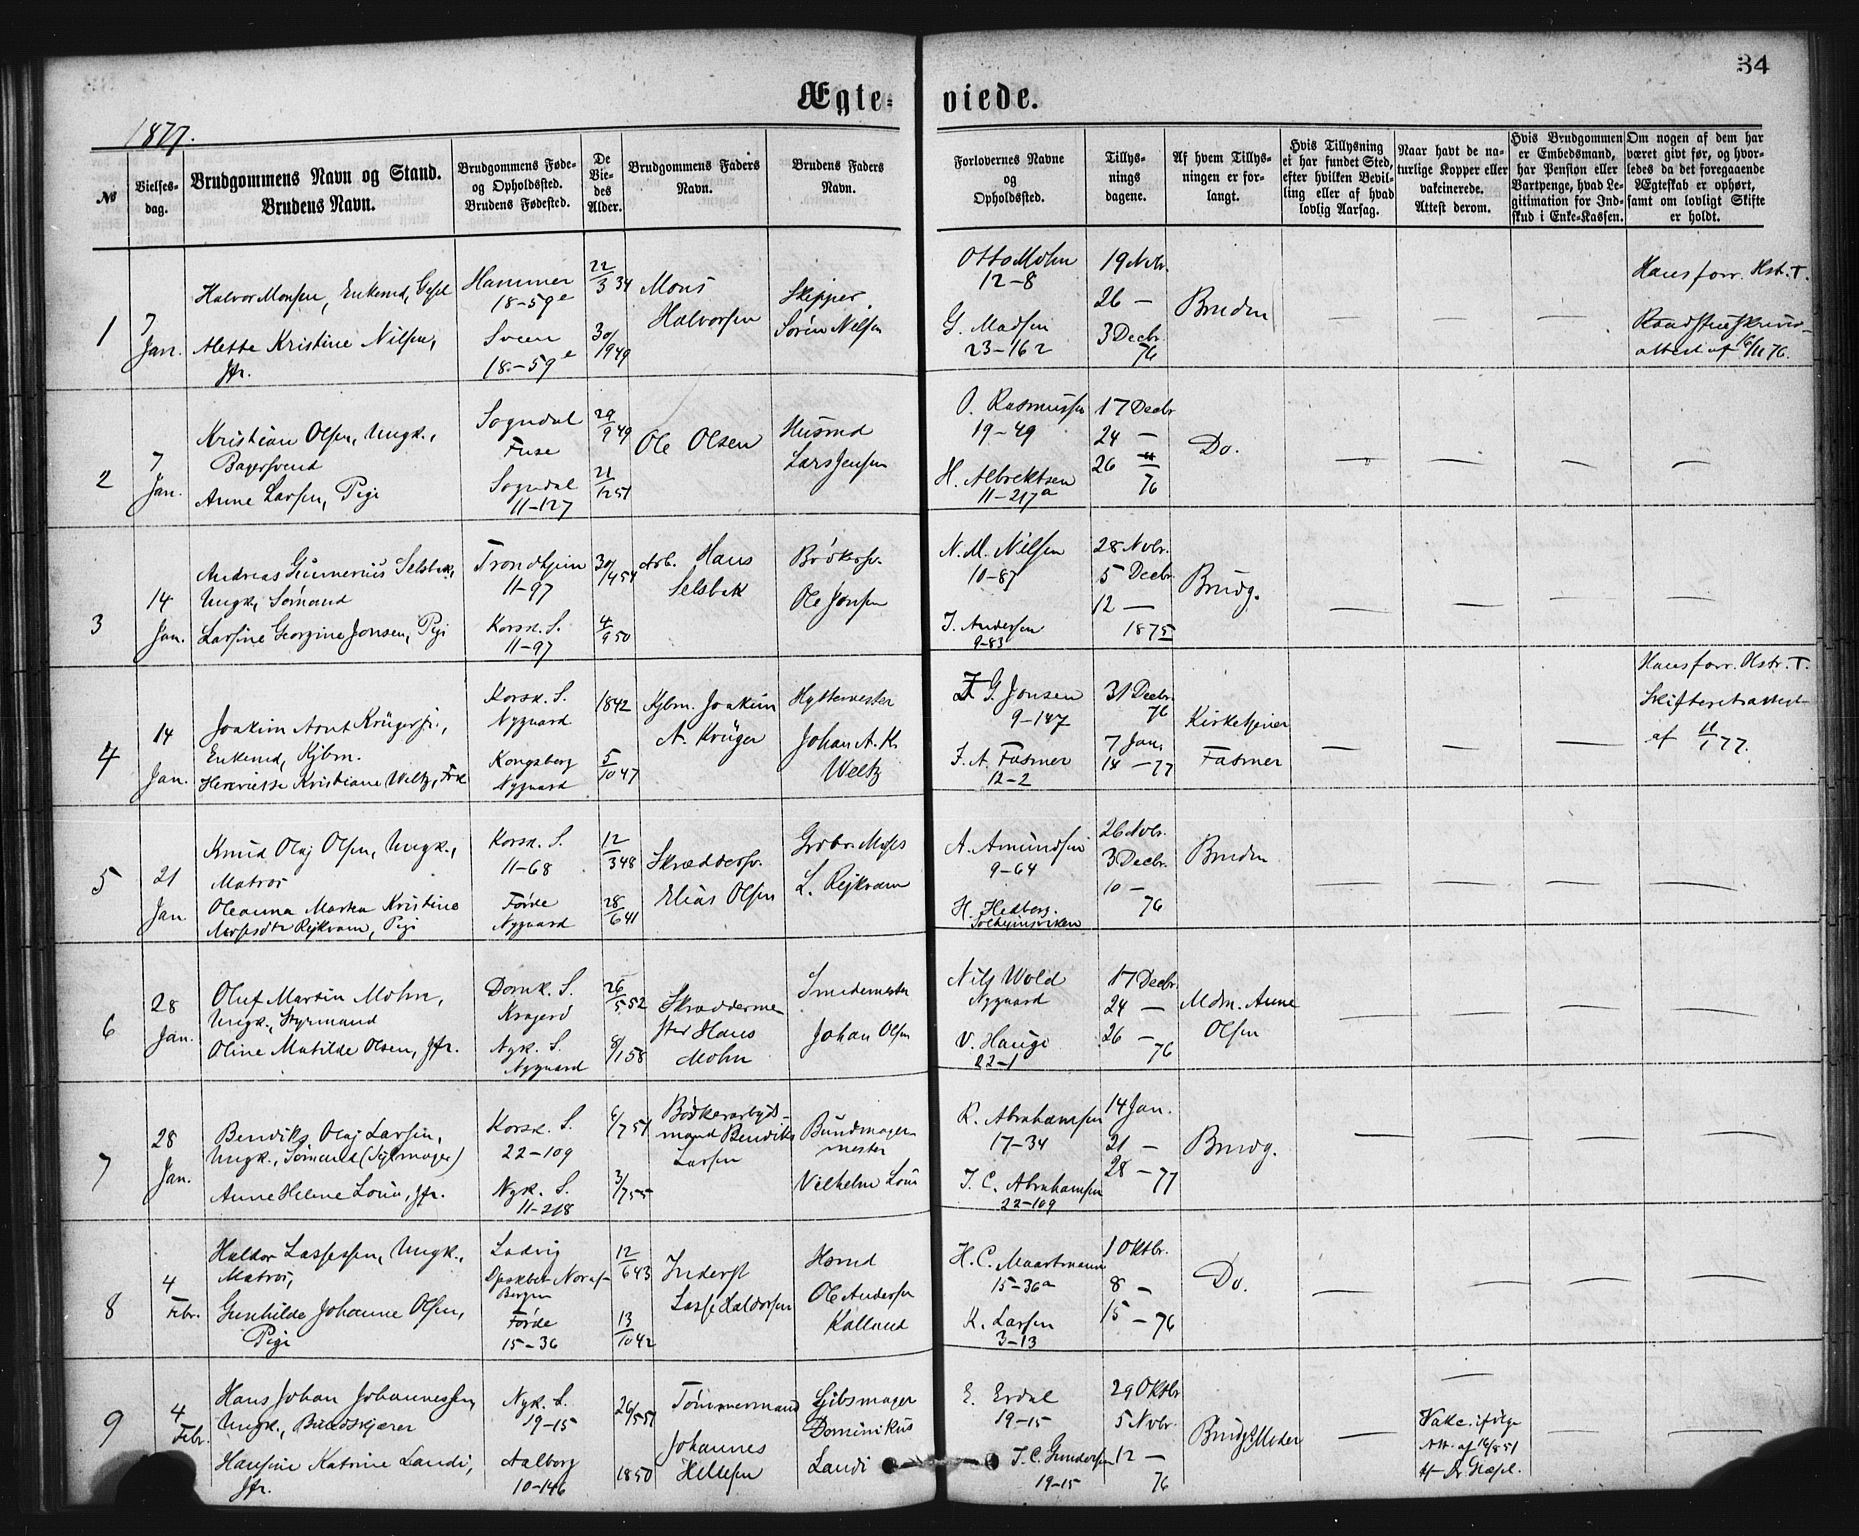 34
Ægteviede.
1877.
No
Vielsesdag.
Brudgommens Navn og Stand.
Brudens Navn.
Brudgommens Fødeog Opholdssted.
Brudens Fødested.
De Viedes Alder.
Brudgommens Faders Navn.
Brudens Faders Navn.
Forlovernes Navne og Opholdssted.
Tillysningsdagene.
Af hvem Tillysningen er forlangt.
Hvis Tillysning ei har fundet Sted, efter hvilken Bevilling eller af hvad lovlig Aarsag.
Naar havt de naturlige Kopper eller vakcinerede. Attest derom.
Hvis Brudgommen er Embedsmand, har Pension eller Vartpenge, hvad Legitimation for Indskud i Enke-Kassen.
Om nogen af dem har været givt før, og hvorledes da det foregaaende Ægteskab er ophørt, samt om lovligt Skifte er holdt.
1
7 Jan.
Halvor Monsen, Enkemd,
Alette Kristine Nilsen, Jfr.
Hammer 18-59e
Sveen 18-59e
22/3 34
30/19 49
Mons Halvorsen
Skipper Sören Nilsen
Otto Mohn 12-8
G. Madsen 23-162
19 Novbr.
26 —
3 Decbr. 76
Bruden
— — —
Hans forr. Hstr. T.
attest af 16/11 76.
2
7 Jan.
Kristian Olsen, Ungk.,
Bagersvend
Anne Larsen, Pige
Sogndal
Fuse
Sogndal 11-127
29/9 49
21/12 51
Ole Olsen
Husmd Lars Jensen
O. Rasmussen 19-49
H. Albrektsen 11-217a
17 Decbr
24 —
26 — 76
Do.
— — — —
3
14 Jan.
Andreas Gunnerius Selsbak,
Ungk., Sømand
Larsine Georgine Jonsen, Pige
Trondhjem 11-97
Korsk. S. 11-97
30/4 54
4/9 50
Arb. Hans Selsbak
Bødkersv. Ole Jonsen
N. M. Nilsen 10-87
J. Andersen 9-83
28 Nvbr.
5 Decbr
12 — 1875
Brudg.
— — — —
4
14 Jan.
Joakim Arnt Krüger,
Enkemd, Kjbm.
Henriette Kristiane Weltz, Frk
Korsk. S. Nygaard
Kongsberg Nygaard
1842
5/10 47
Kjbm. Joakim A. Krüger
Hyttemester Johan A. K. Weltz
G. Jonsen 9-147
J. A. Fasmer 12-2
31 Decbr 76
7 Jan.
14 — 77
Kirketjener Fasmer
— — —
Hans forr. Hstr. T.
Skifteretsattest
af 11/1 77.
5
21 Jan
Knud Olaj Olsen, Ungk.,
Matros
Oleanna Marta Kristine
Mosesdtr Rejkvam, Pige
Korsk. S. 11-68
Førde Nygaard
12/3 48
28/6 41
Skræddersv. Elias Olsen
Grdbr. Moses L. Rejkvam
A. Amundsen 9-64
H. Hedberg. Solheimsviken
26 Nvbr.
3 Decbr.
10 — 76
Bruden
— — — —
6
28 Jan.
Oluf Martin Mohn,
Ungk., Styrmand
Oline Matilde Olsen, Jfr.
Domk. S. Kragerø
Nyk. S. Nygaard
26/5 52
8/1 58
Skræddermester Hans Mohn
Smedemester Johan Olsen
Nils Wold Nygaard
V. Hauge 22-1
17 Decbr.
24 —
26 — 76
Mdm. Anne Olsen
— — — —
7
28 Jan.
Bendiks Olaj Larsen,
Ungk., Sømand (Sejlmager)
Anne Helene Louis, Jfr.
Korsk. S. 22-109
Nyk. S. 11-218
6/7 51
3/7 55
Bødkerarbejdsmand Bendiks Larsen
Bundmagermester Vilhelm Louis
K. Abrahamsen 17-34
J. C. Abrahamsen 22-109
14 Jan.
21 —
28 — 77
Brudg.
— — — —
8
4 Febr.
Haldor Lassesen, Ungk.,
Matros,
Gunhilde Johanne Olsen,
Pige
Ladvig
Bergen
Førde 15-36
12/6 43
13/10 42
Inderst Lasse Haldorsen
Hsmd Ole Andersen Kalland
H. C. Maartmann 15-36a
K. Larsen 3-13
1 Oktbr.
8 —
15 — 76
Do.
— — — —
9
4 Febr.
Hans Johan Johannessen,
Ungk., Bundskjærer
Hansine Katrine Landi,
Jfr.
Nyk. S. 19-15
Aalborg 10-146
26/5 51
1850
Tømmermand Johannes Hellesen
Gibsmager Dominikus Landi
E. Erdal 19-15
J. C. Gundersen 19-15
29 Oktbr
5 Nvbr.
12 — 76
Brudgs Moder
—
—
Vakc. ifølge
Att. af 16/8 51
— —